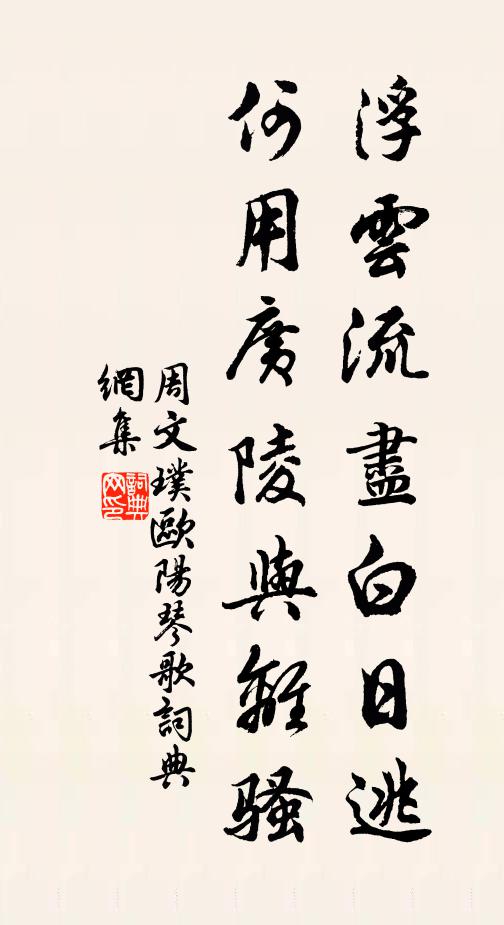 浮雲流盡白日逃
何用廣陵與離騷
周文璞歐陽琴歌詞典
網集
詞典
网印